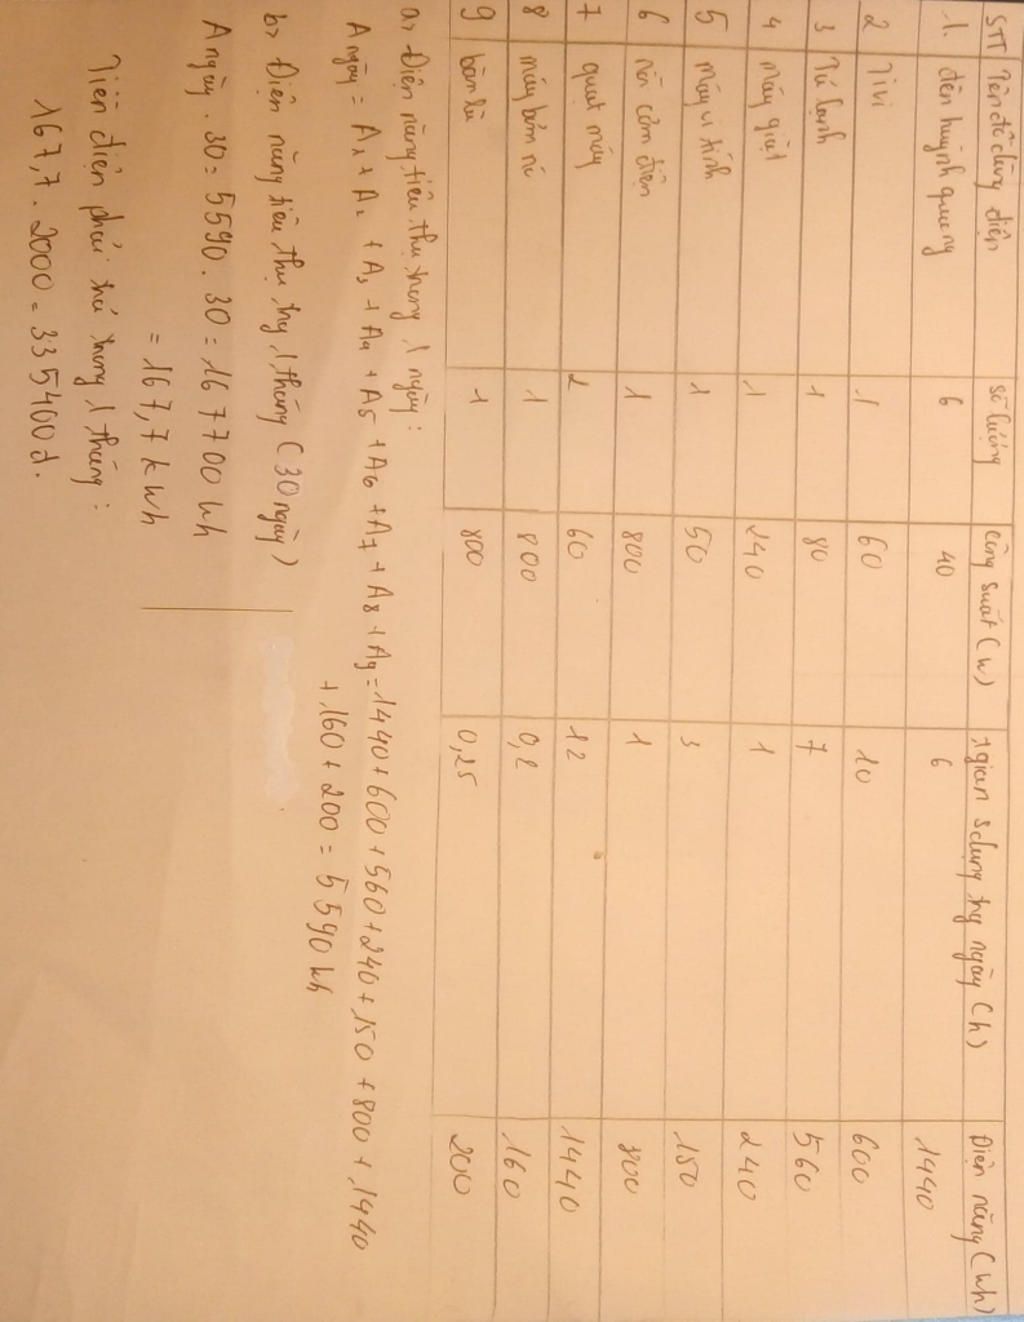 STT Tên đồ dùng điện số lượng Công suất (W) tgian sdụng trg ngày (h) Điện năng (Wh)
1. đèn huỳnh quang 6 40 6 1440
2 Tivi 1 60 10 600
3 Tủ lạnh 1 80 7 560
4 máy giặt 1 240 1 240
5 máy vi tính 1 50 3 150
6 nồi cơm điện 1 800 1 800
7 quạt máy 2 60 12 1440
8 máy bơm nc 1 800 0,2 160
9 bàn là 1 800 0,25 200
a, Điện năng tiêu thụ trong 1 ngày:
A ngày = A1 + A2 + A3 + A4 + A5 + A6 + A7 + A8 + A9 = 1440 + 600 + 560 + 240 + 150 + 800 + 1440
+ 160 + 200 = 5590 Wh
b, Điện năng tiêu thụ trg 1 tháng (30 ngày)
A ngày . 30 = 5590 . 30 = 167700 Wh
= 167,7 kWh
Tiền điện phải trả trong 1 tháng:
167,7 . 2000 = 335400đ.